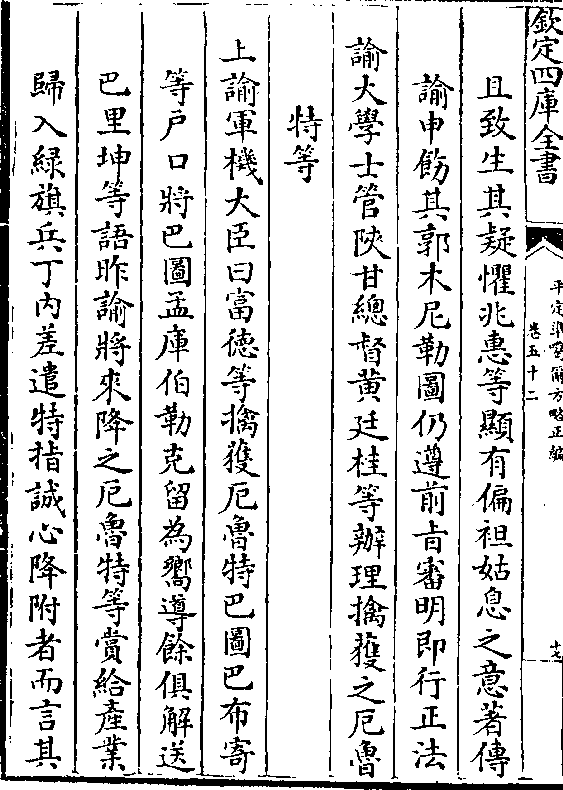 欽定四庫全書
平定準噶爾方略正編
卷五十二
十七
且致生其疑懼兆惠等顯有偏袒姑息之意著傳
諭申飭其郭木尼勒圖仍遵前㫖審明即行正法
諭大學士管陝甘總督黄廷桂等辦理擒獲之厄魯
特等
上諭軍機大臣曰富徳等擒獲厄魯特巴圖巴布寄
等户口將巴圖孟庫伯勒克留為嚮導餘俱解送
巴里坤等語昨諭將來降之厄魯特等賞給産業
歸入緑旗兵丁内差遣特指誠心降附者而言其